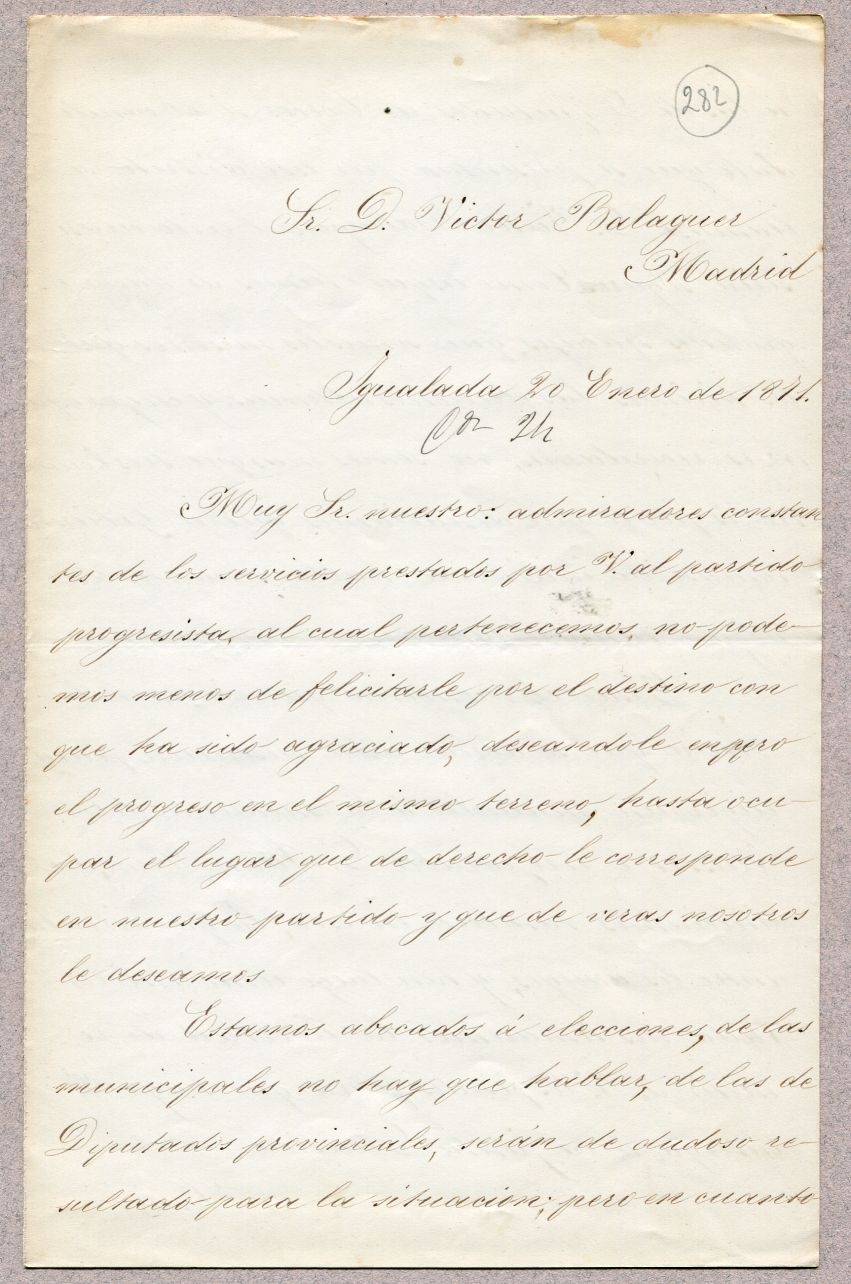 282
Sr. D. Victor Balaguer
Madrid
Igualada 20 Enero de 1871.
24
Muy Sr. nuestro: admiradores constan
tes de los servicios prestados por V. al partido
progresista, al cual pertenecemos, no pode-
mos menos de felicitarle por el destino con
que ha sido agraciado, deseandole empero
el progreso en el mismo terreno, hasta ocu-
par el lugar que de derecho le corresponde
en nuestro partido y que de veras nosotros
le deseamos
Estamos abocados á elecciones, de las
municipales no hay que hablar, de las de
Diputados provinciales, serán de dudoso re-
sultado para la situacion; pero en cuanto